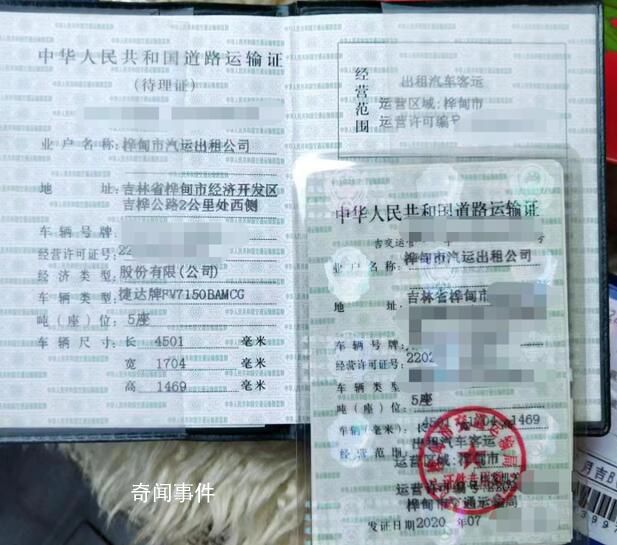 中华人民共和国道路运输证
(待理证)
业户名称:桦甸市汽运出租公司
地 址:吉林省桦甸市经济开发区
吉桦公路2公里处西侧
车辆号牌:
经营许可证号:22
经济类型:股份有限(公司)
车辆类型:捷达牌FV7150BAMCG
吨(座)位:5座
车辆尺寸:长 4501 毫米
宽 1704 毫米
高 1469 毫米
经营范围
出租汽车客运
运营区域:桦甸市
运营许可编号
中华人民共和国道路运输证
吉交运管 号
业户名称:桦甸市汽运出租公司
地 址:吉林省桦甸市
车辆号牌:
经营许可证号:2202
车辆类型:
吨(座)位:5座
车辆(毫米):长 4501 1704 1469
经营范围 出租汽车客运
运营区域:桦甸市
运营许可编号
桦甸市交通运输局
发证日期2020 年07
奇闻事件
月吉B